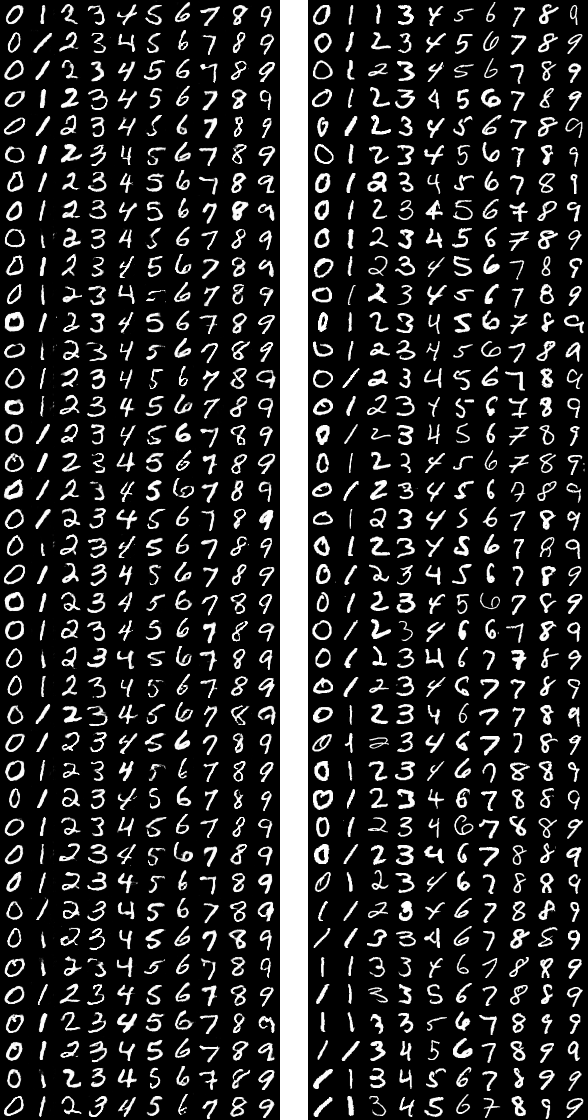 0 1 2 3 4 5 6 7 8 9
0 1 2 3 4 5 6 7 8 9
0 1 2 3 4 5 6 7 8 9
0 1 2 3 4 5 6 7 8 9
0 1 2 3 4 5 6 7 8 9
0 1 2 3 4 5 6 7 8 9
0 1 2 3 4 5 6 7 8 9
0 1 2 3 4 5 6 7 8 9
0 1 2 3 4 5 6 7 8 9
0 1 2 3 4 5 6 7 8 9
0 1 2 3 4 5 6 7 8 9
0 1 2 3 4 5 6 7 8 9
0 1 2 3 4 5 6 7 8 9
0 1 2 3 4 5 6 7 8 9
0 1 2 3 4 5 6 7 8 9
0 1 2 3 4 5 6 7 8 9
0 1 2 3 4 5 6 7 8 9
0 1 2 3 4 5 6 7 8 9
0 1 2 3 4 5 6 7 8 9
0 1 2 3 4 5 6 7 8 9
0 1 2 3 4 5 6 7 8 9
0 1 2 3 4 5 6 7 8 9
0 1 2 3 4 5 6 7 8 9
0 1 2 3 4 5 6 7 8 9
0 1 2 3 4 5 6 7 8 9
0 1 2 3 4 5 6 7 8 9
0 1 2 3 4 5 6 7 8 9
0 1 2 3 4 5 6 7 8 9
0 1 2 3 4 5 6 7 8 9
0 1 2 3 4 5 6 7 8 9
0 1 2 3 4 5 6 7 8 9
0 1 2 3 4 5 6 7 8 9
0 1 2 3 4 5 6 7 8 9
0 1 2 3 4 5 6 7 8 9
0 1 2 3 4 5 6 7 8 9
0 1 2 3 4 5 6 7 8 9
0 1 2 3 4 5 6 7 8 9
0 1 2 3 4 5 6 7 8 9
0 1 2 3 4 5 6 7 8 9
0 1 2 3 4 5 6 7 8 9
0 1 1 3 4 5 6 7 8 9
0 1 2 3 4 5 6 7 8 9
0 1 2 3 4 5 6 7 8 9
0 1 2 3 4 5 6 7 8 9
0 1 2 3 4 5 6 7 8 9
0 1 2 3 4 5 6 7 8 9
0 1 2 3 4 5 6 7 8 9
0 1 2 3 4 5 6 7 8 9
0 1 2 3 4 5 6 7 8 9
0 1 2 3 4 5 6 7 8 9
0 1 2 3 4 5 6 7 8 9
0 1 2 3 4 5 6 7 8 9
0 1 2 3 4 5 6 7 8 9
0 1 2 3 4 5 6 7 8 9
0 1 2 3 4 5 6 7 8 9
0 1 2 3 4 5 6 7 8 9
0 1 2 3 4 5 6 7 8 9
0 1 2 3 4 5 6 7 8 9
0 1 2 3 4 5 6 7 8 9
0 1 2 3 4 5 6 7 8 9
0 1 2 3 4 5 6 7 8 9
0 1 2 3 4 5 6 7 8 9
0 1 2 3 4 6 6 7 8 9
0 1 2 3 4 6 7 7 8 9
0 1 2 3 4 6 7 7 8 9
0 1 2 3 4 6 7 7 8 9
0 1 2 3 4 6 7 7 8 9
0 1 2 3 4 6 7 8 8 9
0 1 2 3 4 6 7 8 8 9
0 1 2 3 4 6 7 8 8 9
0 1 2 3 4 6 7 8 8 9
0 1 2 3 4 6 7 8 8 9
1 1 2 3 4 6 7 8 8 9
1 1 3 3 4 6 7 8 8 9
1 1 3 3 4 6 7 8 8 9
1 1 3 3 5 6 7 8 8 9
1 1 3 3 5 6 7 8 9 9
1 1 3 4 5 6 7 8 9 9
1 1 3 4 5 6 7 8 9 9
1 1 3 4 5 6 7 8 9 9